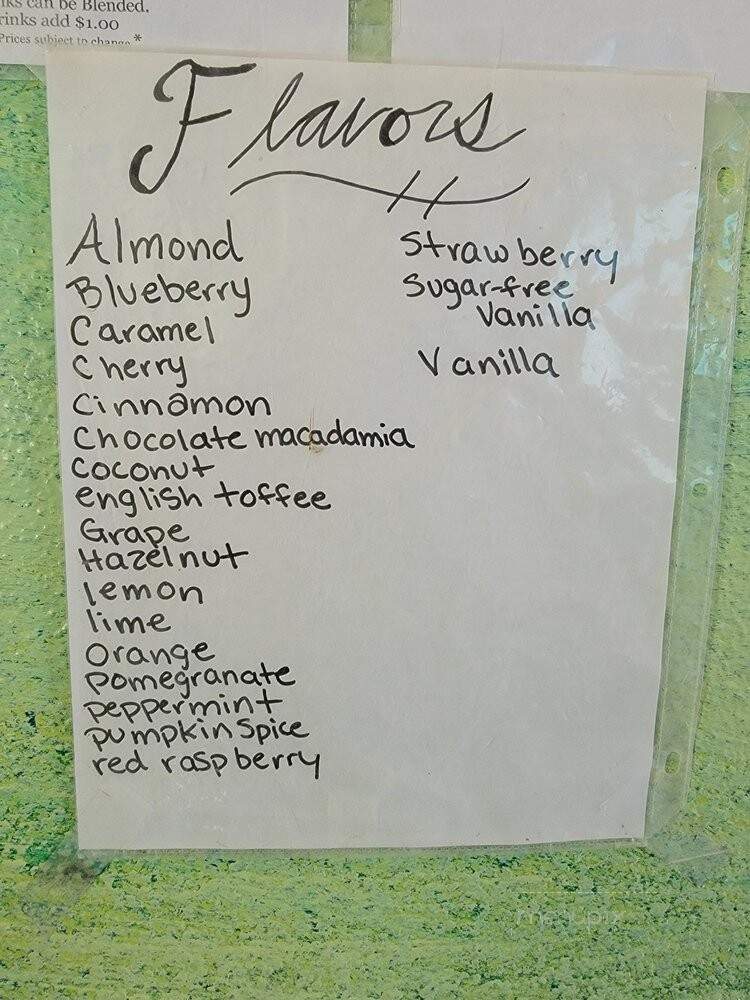 ks can be Blended,
rinks add $1.00
Prices subject to change *
Flavors
Almond
Blueberry
Caramel
Cherry
Cinnamon
Chocolate macadamia
Coconut
english toffee
Grape
Hazelnut
lemon
lime
Orange
pomegranate
peppermint
pumpkin Spice
red raspberry
Strawberry
Sugar-free
Vanilla
Vanilla